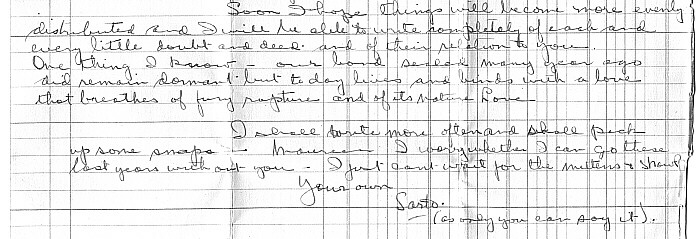 Soon I hope things will become more evenly
distributed and I will be able to write completely of each and
every little doubt and deed and of their relation to you.
One thing I know - our bond sealed many year ago
did remain domant but today lives and binds with a love
that breathes of fury rapture and of its Mature Love
I shall write more often and shall pick
up some snaps - Maureen I worry whether I can go these
last years without you - I just cant wait for the mittens &
Your own
Sarto.
(as only you can say it).